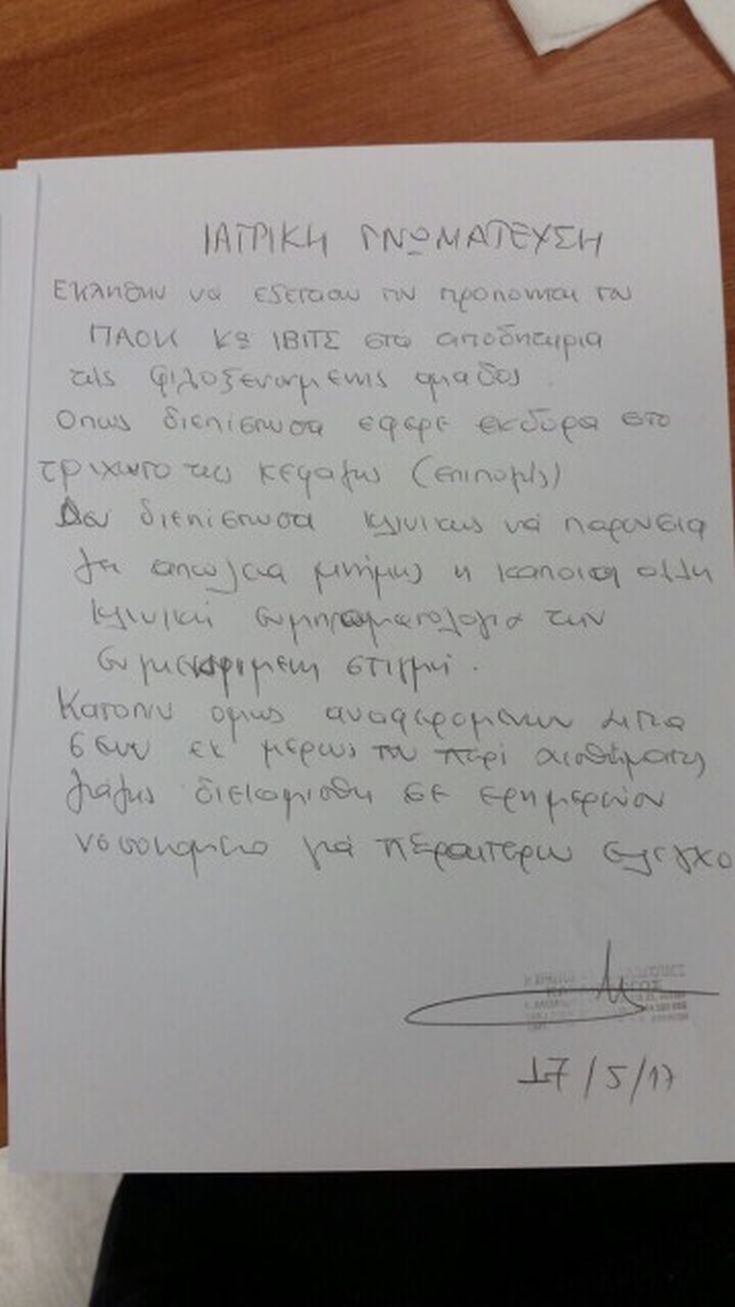 ΙΑΤΡΙΚΗ ΓΝΩΜΑΤΕΥΣΗ
Εκληθην να εξετασω τον προπονητη του
ΠΑΟΚ κο ΙΒΙΤΣ στα αποδητηρια
της φιλοξενουμενης ομαδος.
Οπως διεπιστωσα εφερε εκδορα στο
τριχωτο της κεφαλης (επιπολης)
Δεν διεπιστωσα κλινικως να παρουσια
ζει απωλεια μνήμης η καποια αλλη
κλινική συμπτωματολογια την
συγκεκριμενη στιγμή.
Κατοπιν ομως αναφερομενων
εκ μερους του περι αισθήματος
ζαλης διεκομισθη σε εφημερευον
νοσοκομειο γιά περαιτερω ελεγχο
17/5/17